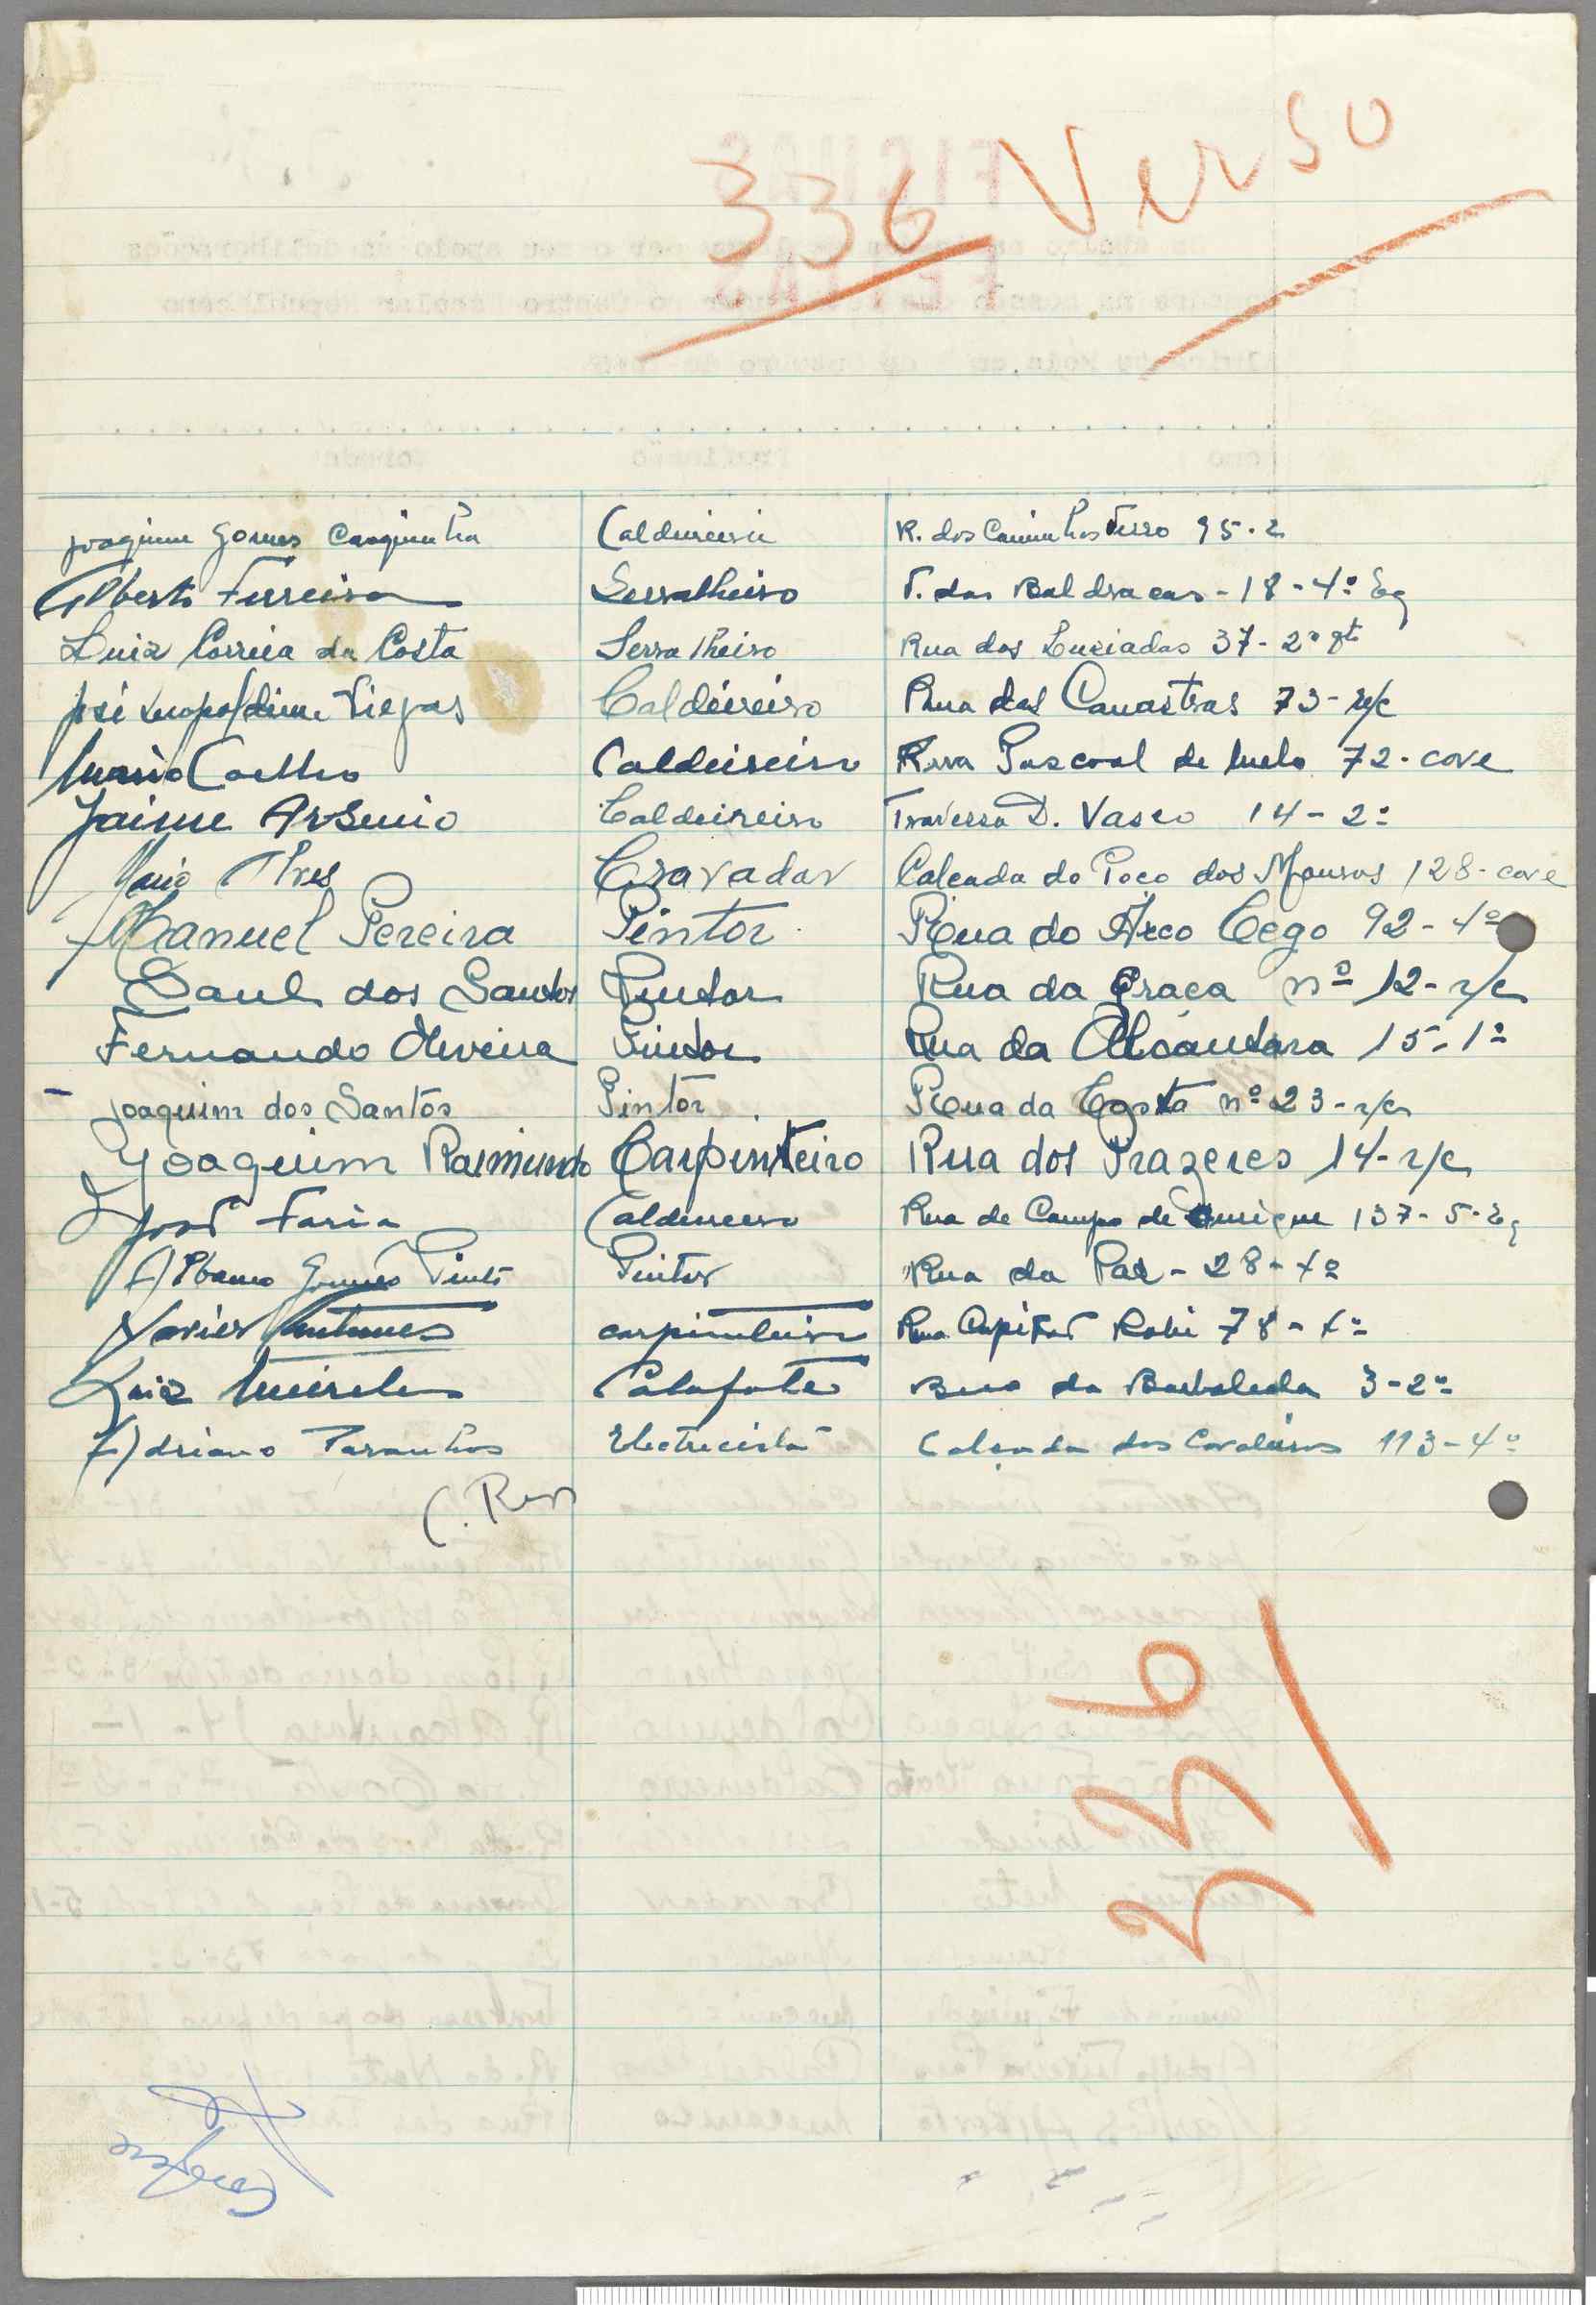 336 Verso
Joaquim Gomes Caldeireiro R. dos Caminhos Ferro 95-2
Alberto Ferreira Serralheiro T. das Baldracas - 18 - 4º Eq
Luiz Correia da Costa Serralheiro Rua dos Luziadas 37 - 2º
José Leopoldino Viegas Caldeireiro Rua das Canastras 73 - r/c
Mario Coelho Caldeireiro Rua Pascoal de Melo 72 - cave
Jaime Arsenio Caldeireiro Travessa D. Vasco 14 - 2º
Alves Cravador Calçada do Poço dos Mouros 128 - cave
Manuel Pereira Pintor Rua do Arco Cego 92 - 4º
Saul dos Santos Pintor Rua da Graça nº 12 - r/c
Fernando Oliveira Pintor Rua da Alcantara 15 - 1º
Joaquim dos Santos Pintor Rua da Costa nº 23 - r/c
Joaquim Raimundo Carpinteiro Rua dos Prazeres 14 - r/c
José Faria Caldeireiro Rua de Campo de Ourique 137 - 5 - Eq
Albano Gomes Pinto Pintor Rua da Paz - 28 -
Xavier Antunes carpinteiro Rua Capitão Robi 78 -
Luiz Meireles Calafate da Barbaleda 3 - 2º
Adriano Paranhos Electricista Calçada dos Cavaleiros 113 - 4º
336